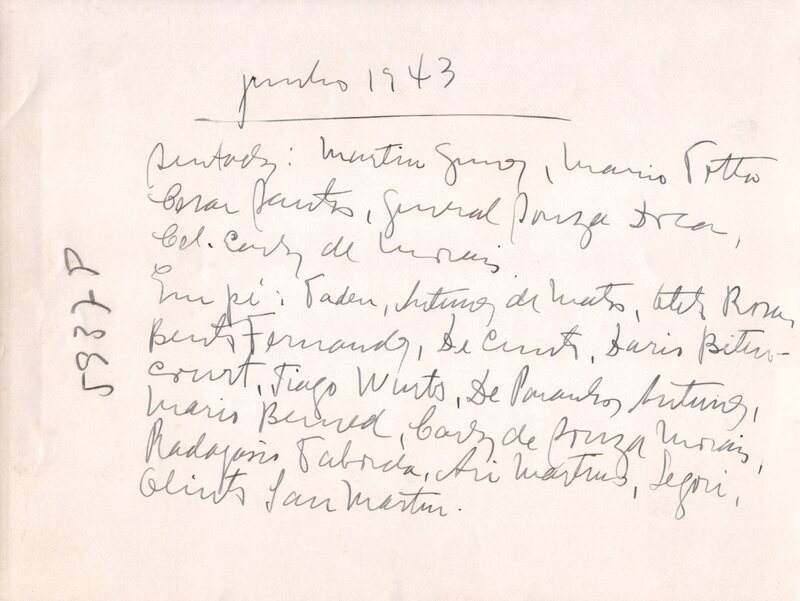 junho 1943
sentados: Martin Gomes, Mario Totta
Cesar Santos, General Souza Doca,
Cel. Carlos de Morais
Em pé: Tadeu, Antunes de Matos, Otelo Rosa,
Bento Fernandes, De Curtis, Dario Biten-
court, Tiago Wurth, De Paranhos Antunes,
Mario Bernd, Carlos de Souza Morais,
Radagasio Taborda, Ari Martins, Segori,
Olinto San Martin.
5937 P